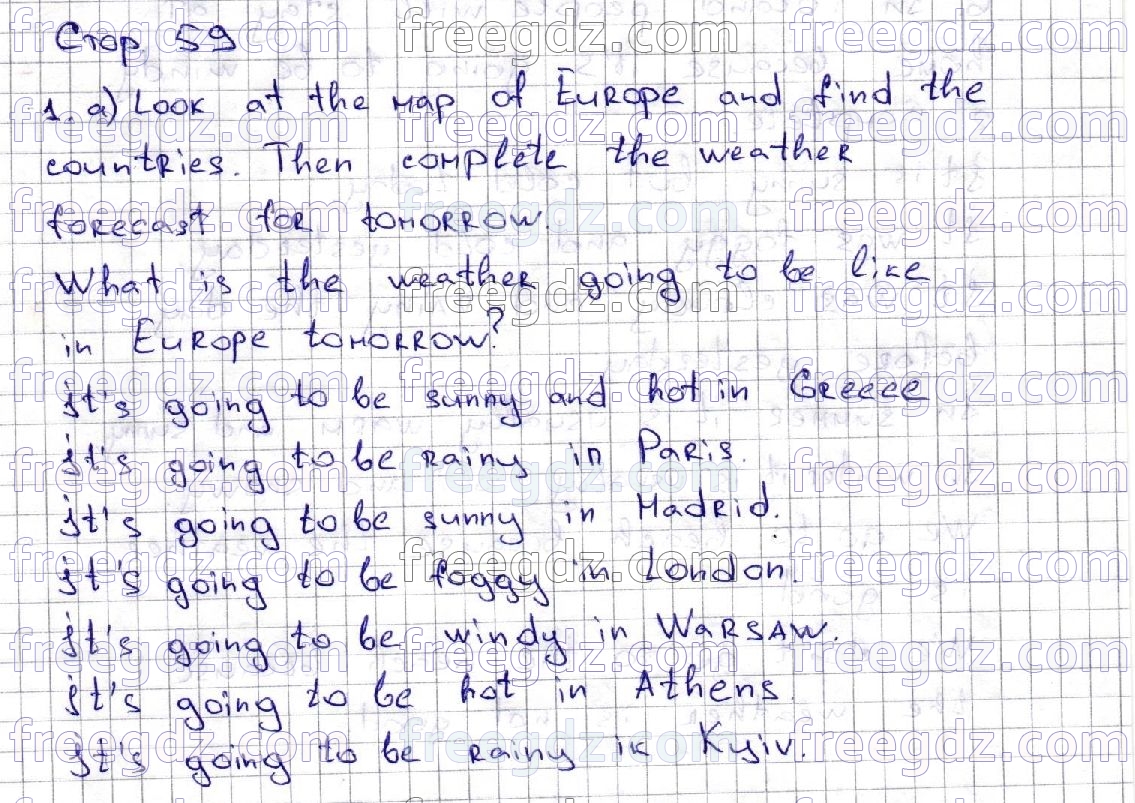 Стор 59
1. a) Look at the map of Europe and find the
countries. Then complete the weather
forecast for tomorrow.
What is the weather going to be like
in Europe tomorrow?
It's going to be sunny and hot in Greece
It's going to be rainy in Paris.
It's going to be sunny in Madrid.
It's going to be foggy in London.
It's going to be windy in Warsaw.
It's going to be hot in Athens.
It's going to be rainy in Kyiv.
freegdz.com